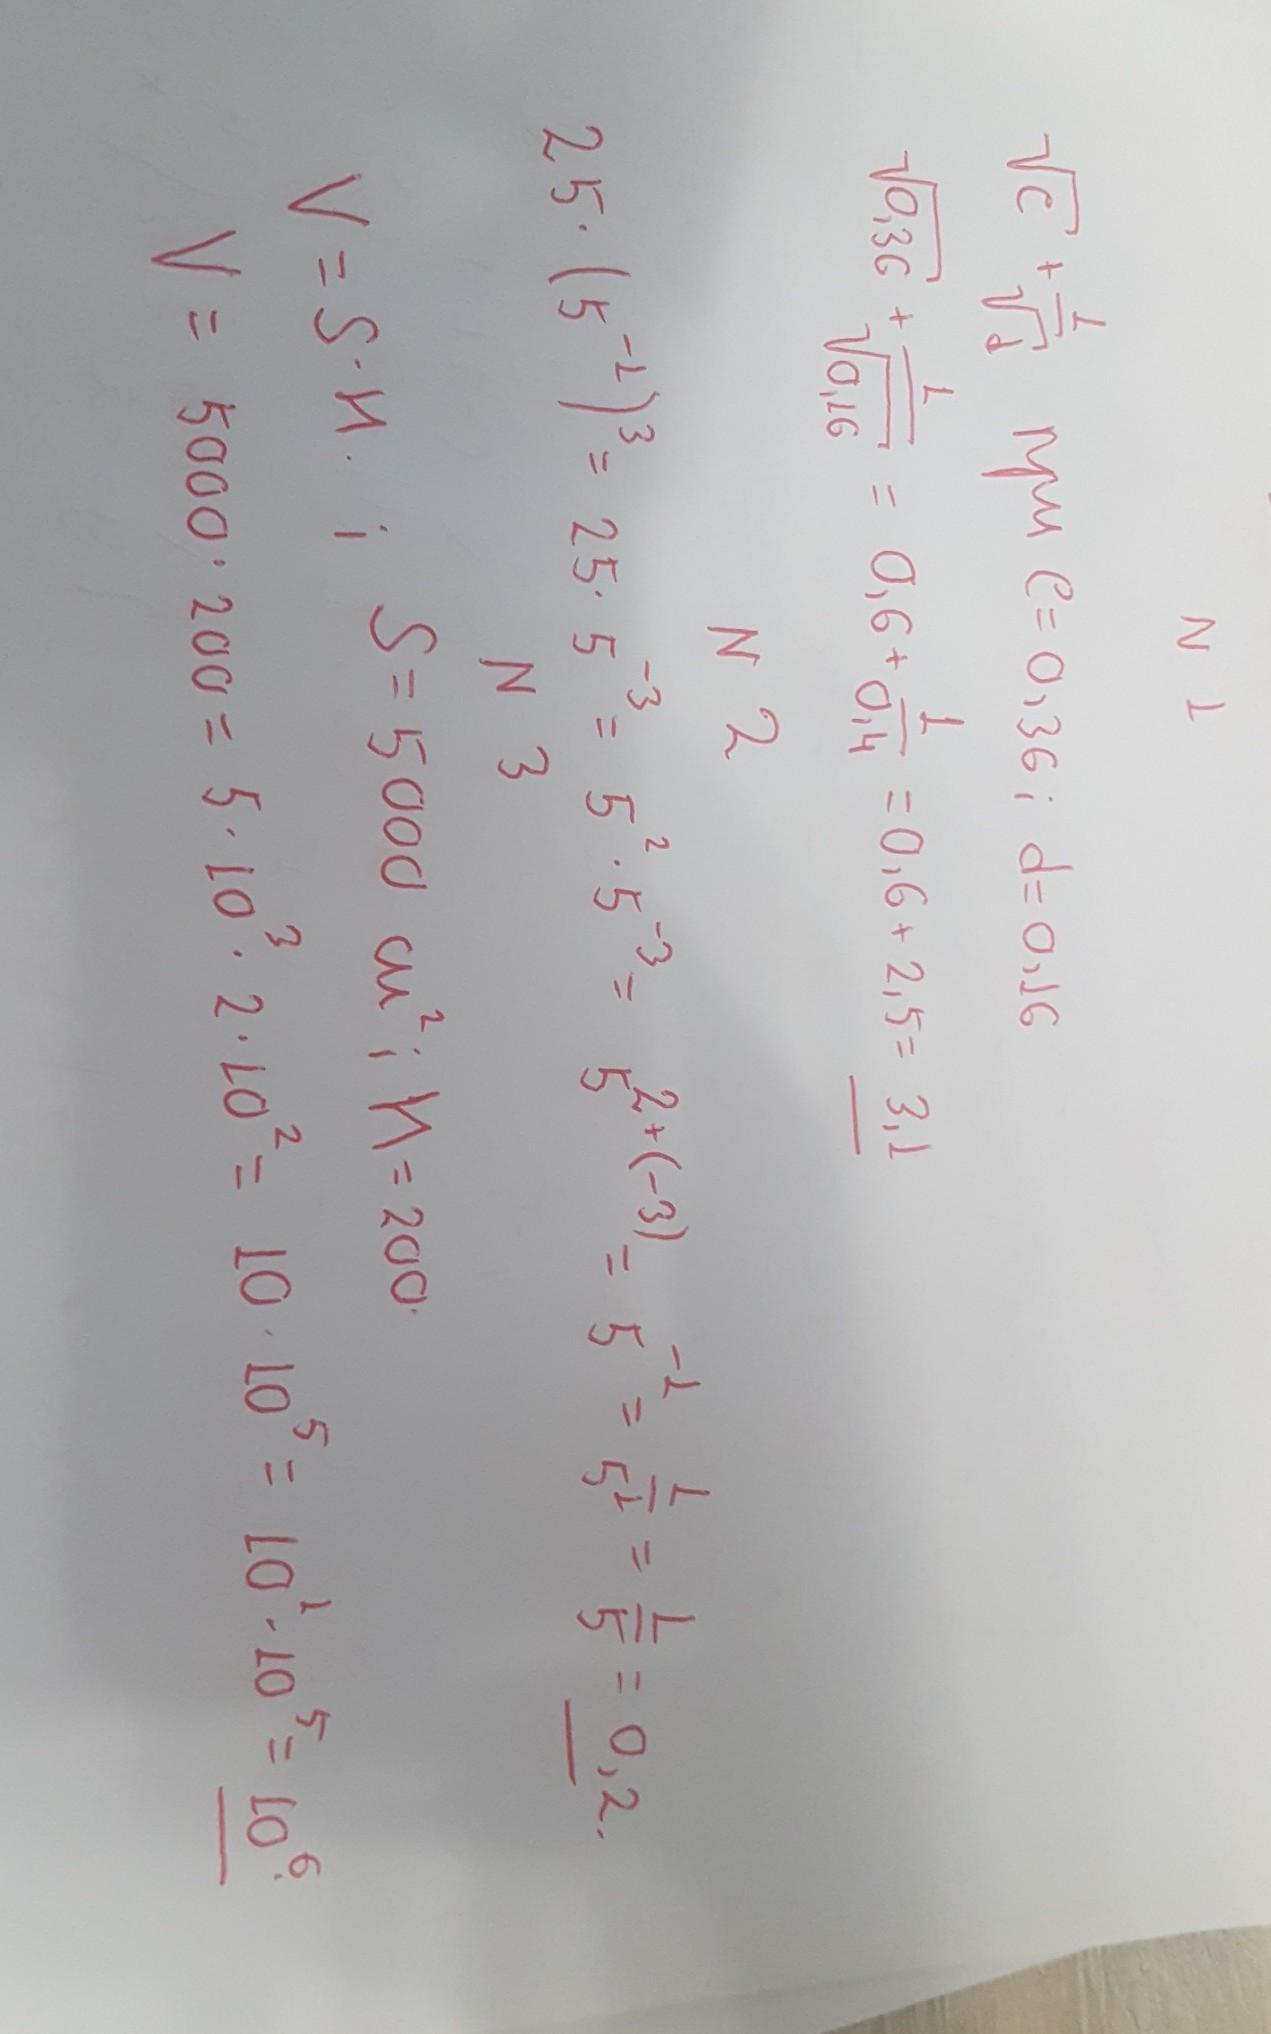 N 1
√c + 1/√d при c = 0,36; d = 0,16
√0,36 + 1/√0,16 = 0,6 + 1/0,4 = 0,6 + 2,5 = 3,1
N 2
25 · (5⁻¹)³ = 25 · 5⁻³ = 5² · 5⁻³ = 5²⁺⁽⁻³⁾ = 5⁻¹ = 1/5¹ = 1/5 = 0,2.
N 3
V = S · H. ; S = 5000 см²; H = 200.
V = 5000 · 200 = 5 · 10³ · 2 · 10² = 10 · 10⁵ = 10¹ · 10⁵ = 10⁶.